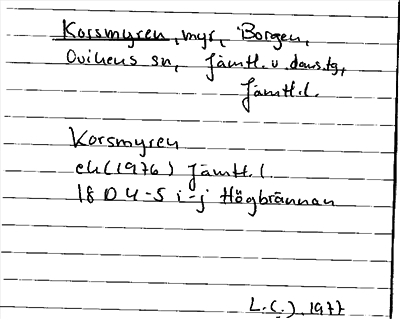 Korsmyren, myr, Borgen,
Ovikens sn, Jämtl. v. doms.tg,
Jämtl.l.
Korsmyren
ek (1976) Jämtl. l
18 D 4-5 i-j Högbrännan
L.C.), 1977